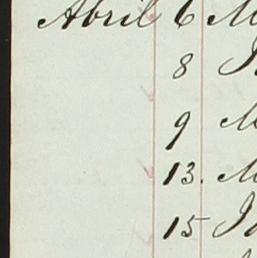 Abril 6 M
8
9 M
13. M
15